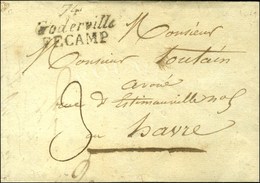 74
Goderville
FECAMP
Monsieur
Monsieur Toutain
avoué
rue d'Estimauville no 5
au havre
3